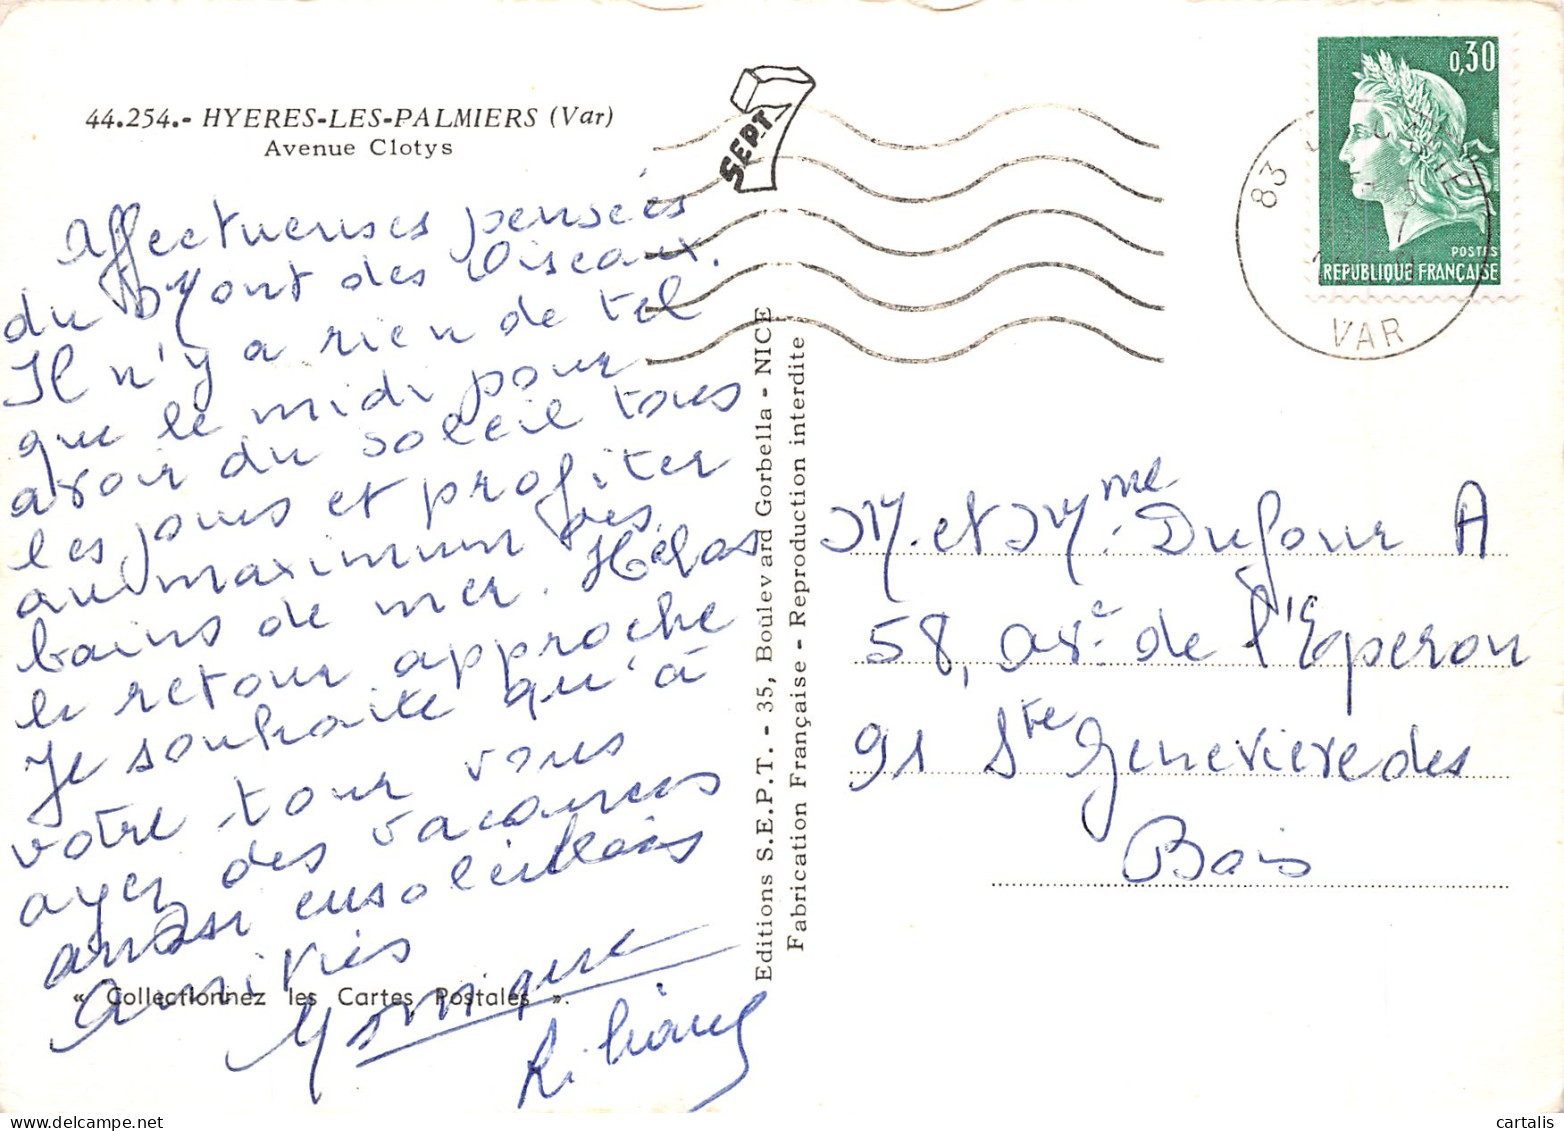 44.254.- HYERES-LES-PALMIERS (Var)
Avenue Clotys
Affectueuses pensées
du Mont des Oiseaux.
Il n'y a rien de tel
que le midi pour
avoir du soleil tous
les jours et profiter
au maximum des
bains de mer. Hélas
le retour approche
Je souhaite qu'à
votre tour vous
ayez des vacances
aussi ensoleillées
Amitiés
Monique
Liliane
« Collectionnez les Cartes Postales ».
Editions S.E.P.T. - 35, Boulevard Gorbella - NICE
Fabrication Française - Reproduction interdite
SEPT
0,30
POSTES
REPUBLIQUE FRANÇAISE
83
VAR
M. et Mme Dufour A
58, ave de l'Eperon
91 Ste Genevieve des
Bois
cartalis